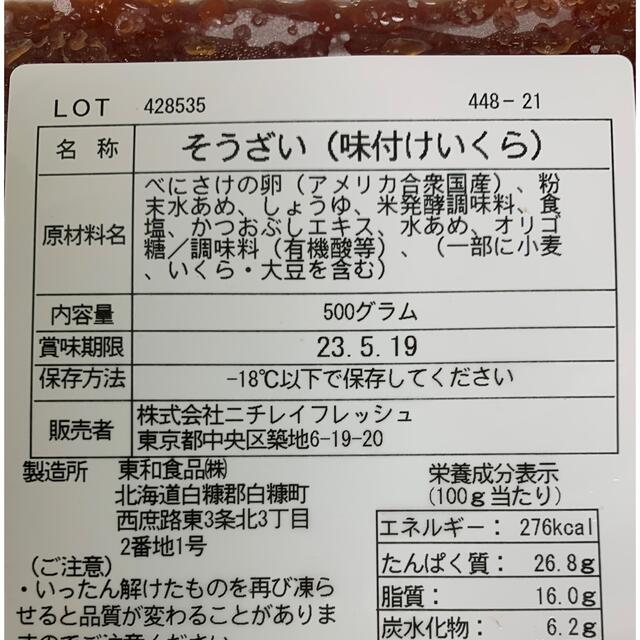 LOT 428535 448-21
名称 そうざい（味付けいくら）
原材料名 べにさけの卵（アメリカ合衆国産）、粉
末水あめ、しょうゆ、米発酵調味料、食
塩、かつおぶしエキス、水あめ、オリゴ
糖／調味料（有機酸等）、（一部に小麦
、いくら・大豆を含む）
内容量 500グラム
賞味期限 23.5.19
保存方法 -18℃以下で保存してください
販売者 株式会社ニチレイフレッシュ
東京都中央区築地6-19-20
製造所 東和食品㈱
北海道白糠郡白糠町
西庶路東3条北3丁目
2番地1号
（ご注意）
・いったん解けたものを再び凍ら
せると品質が変わることがありま
すのでご注意ください
栄養成分表示
(100g当たり)
エネルギー： 276kcal
たんぱく質： 26.8g
脂質： 16.0g
炭水化物： 6.2g